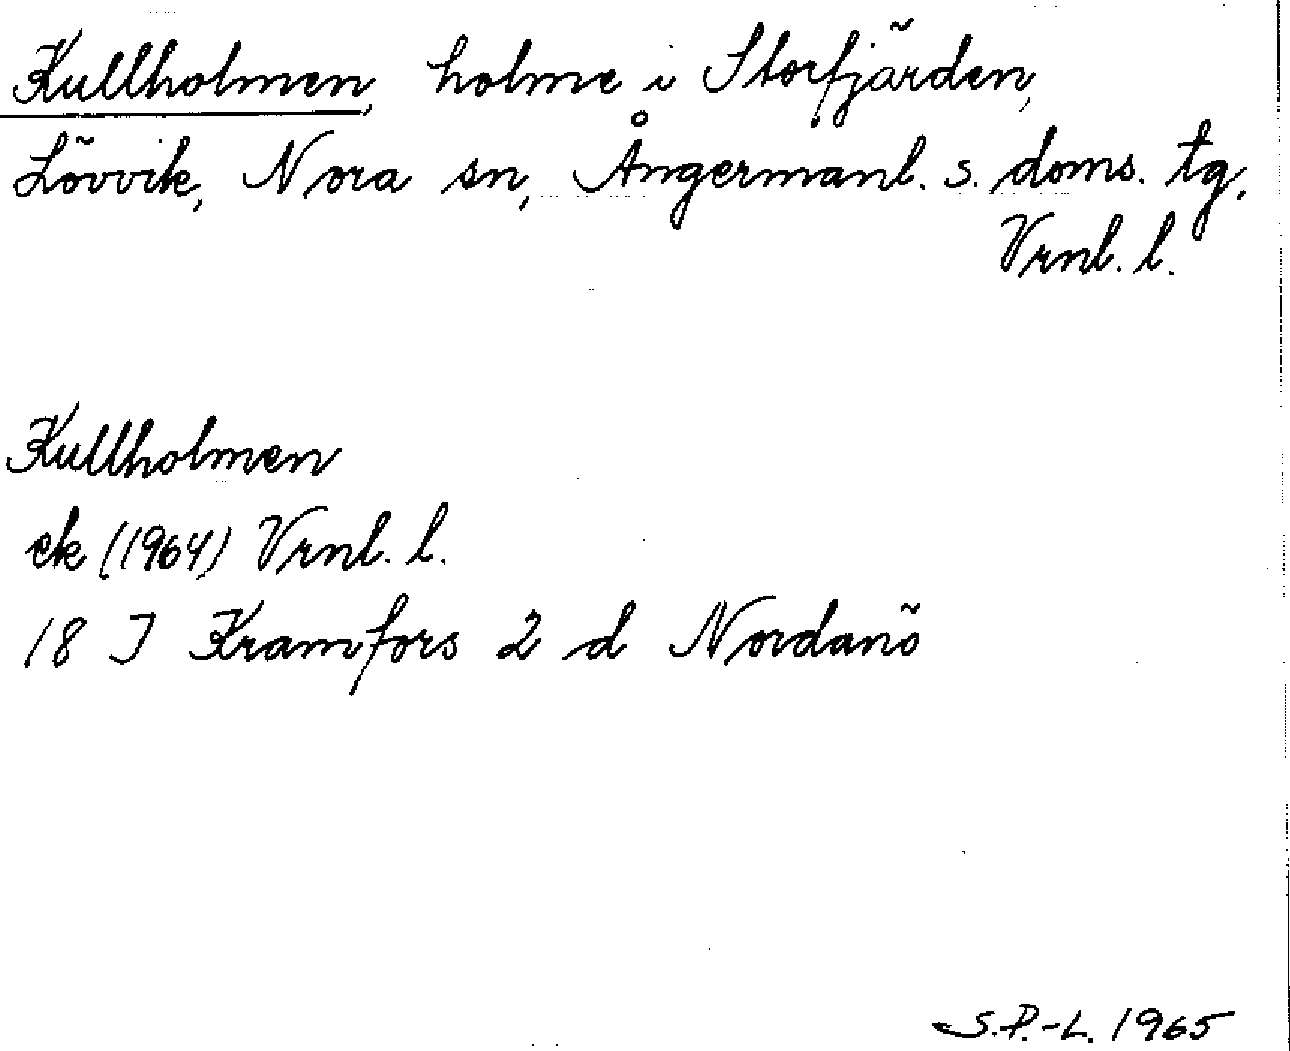 Kullholmen, holme i Storfjärden,
Lövvik, Nora sn, Ångermanl. s. doms. tg,
Vrnl. l.
Kullholmen
ek (1964) Vrnl. l.
18 J Kramfors 2 d Nordanö
S.P.-L. 1965